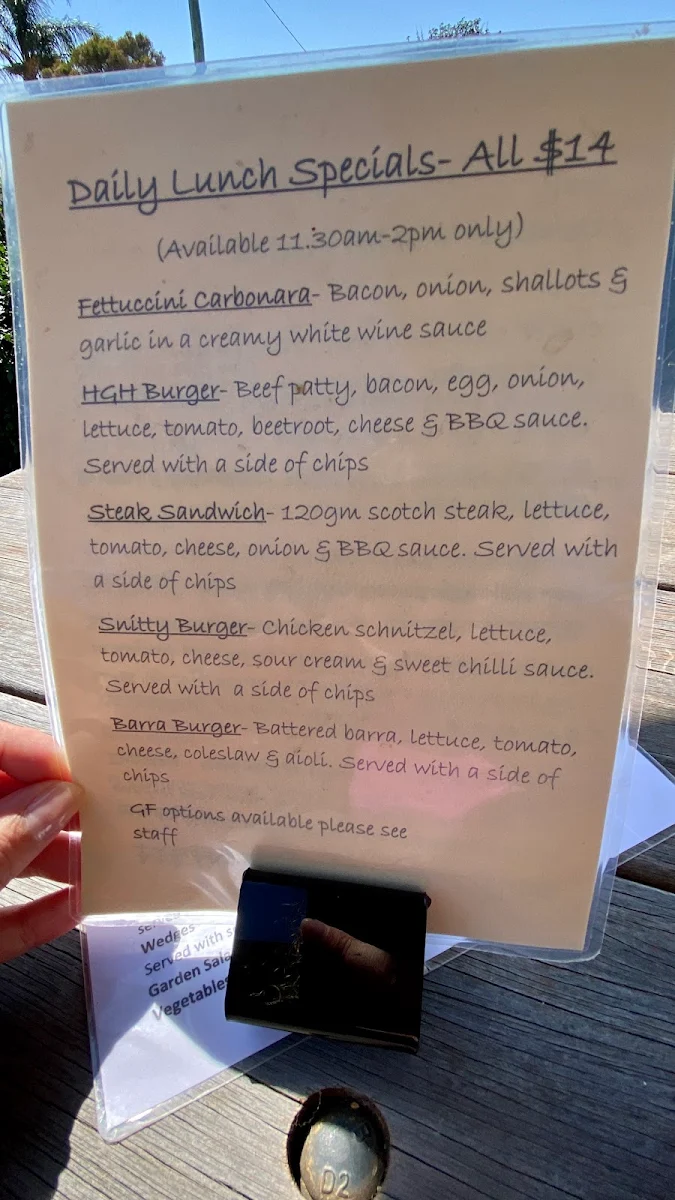 Daily Lunch Specials- All $14
(Available 11.30am-2pm only)
Fettuccini Carbonara- Bacon, onion, shallots &
garlic in a creamy white wine sauce
HGH Burger- Beef patty, bacon, egg, onion,
lettuce, tomato, beetroot, cheese & BBQ sauce.
Served with a side of chips
Steak Sandwich- 120gm scotch steak, lettuce,
tomato, cheese, onion & BBQ sauce. Served with
a side of chips
Snitty Burger- Chicken schnitzel, lettuce,
tomato, cheese, sour cream & sweet chilli sauce.
Served with a side of chips
Barra Burger- Battered barra, lettuce, tomato,
cheese, coleslaw & aioli. Served with a side of
chips
GF options available please see
staff
Wedges
Served with
Garden
Vegetables
D2